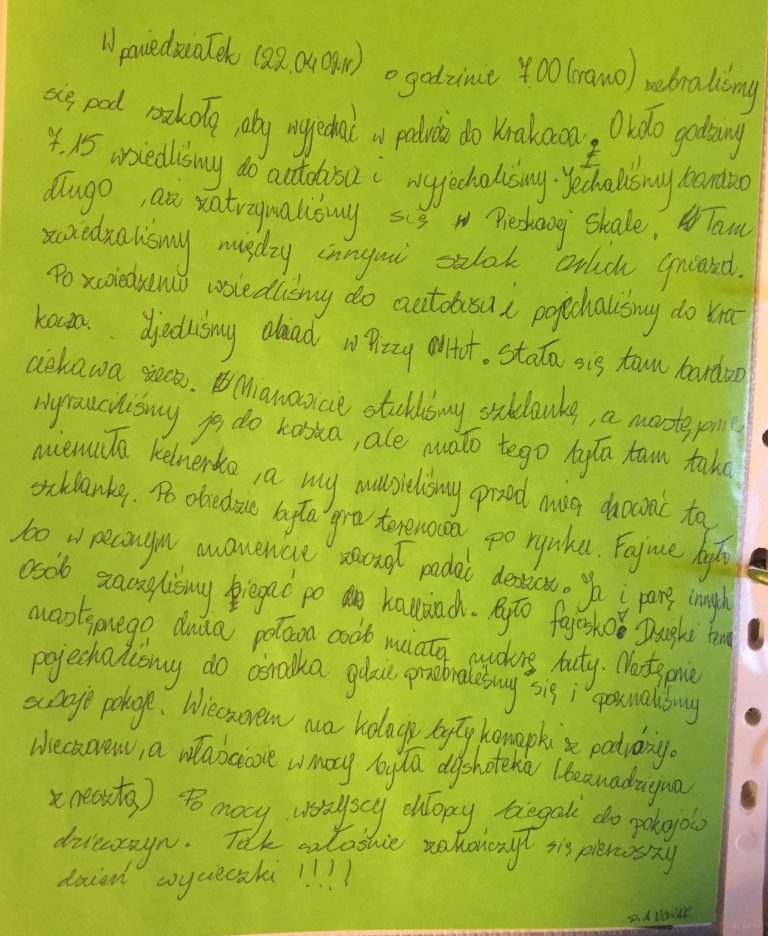 W poniedziałek (22.04.02r.) o godzinie 7.00 (rano) zebraliśmy
się pod szkołą, aby wyjechać w podróż do Krakowa. Około godziny
7.15 wsiedliśmy do autobusu i wyjechaliśmy. Jechaliśmy bardzo
długo, aż zatrzymaliśmy się w Pieskowej Skale. Tam
zwiedzaliśmy między innymi szlak orlich gniazd.
Po zwiedzeniu wsiedliśmy do autobusu i pojechaliśmy do Kra-
kowa. Zjedliśmy obiad w Pizzy Hut. Stała się tam bardzo
ciekawa rzecz. Mianowicie stukliśmy szklankę, a następnie
wyrzuciliśmy ją do kosza, ale mało tego była tam taka
niemiła kelnerka, a my musieliśmy przed nią chować tą
szklankę. Po obiedzie była gra terenowa po rynku. Fajnie było
bo w pewnym momencie zaczął padać deszcz. Ja i parę innych
osób zaczęliśmy biegać po kałużach. Było fajosko! Dzięki temu
następnego dnia połowa osób miała mokre buty. Następnie
pojechaliśmy do ośrodka gdzie przebraliśmy się i poznaliśmy
swoje pokoje. Wieczorem na kolację były kanapki z podróży.
Wieczorem, a właściwie w nocy była dyskoteka (beznadziejna
z resztą) Po nocy wszyscy chłopcy biegali do pokojów
dziewczyn. Tak właśnie zakończył się pierwszy
dzień wycieczki !!!!